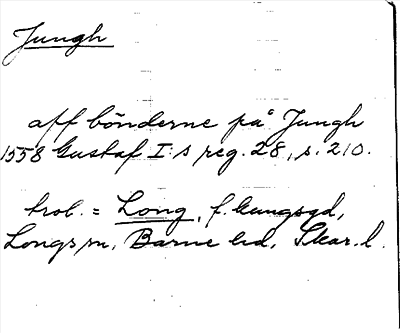 Jungh
aff bönderne på Jungh
1558 Gustaf I:s reg. 28, s. 210.
trol. = Long, f. kungsgd,
Longs sn, Barne hd, Skar. l.